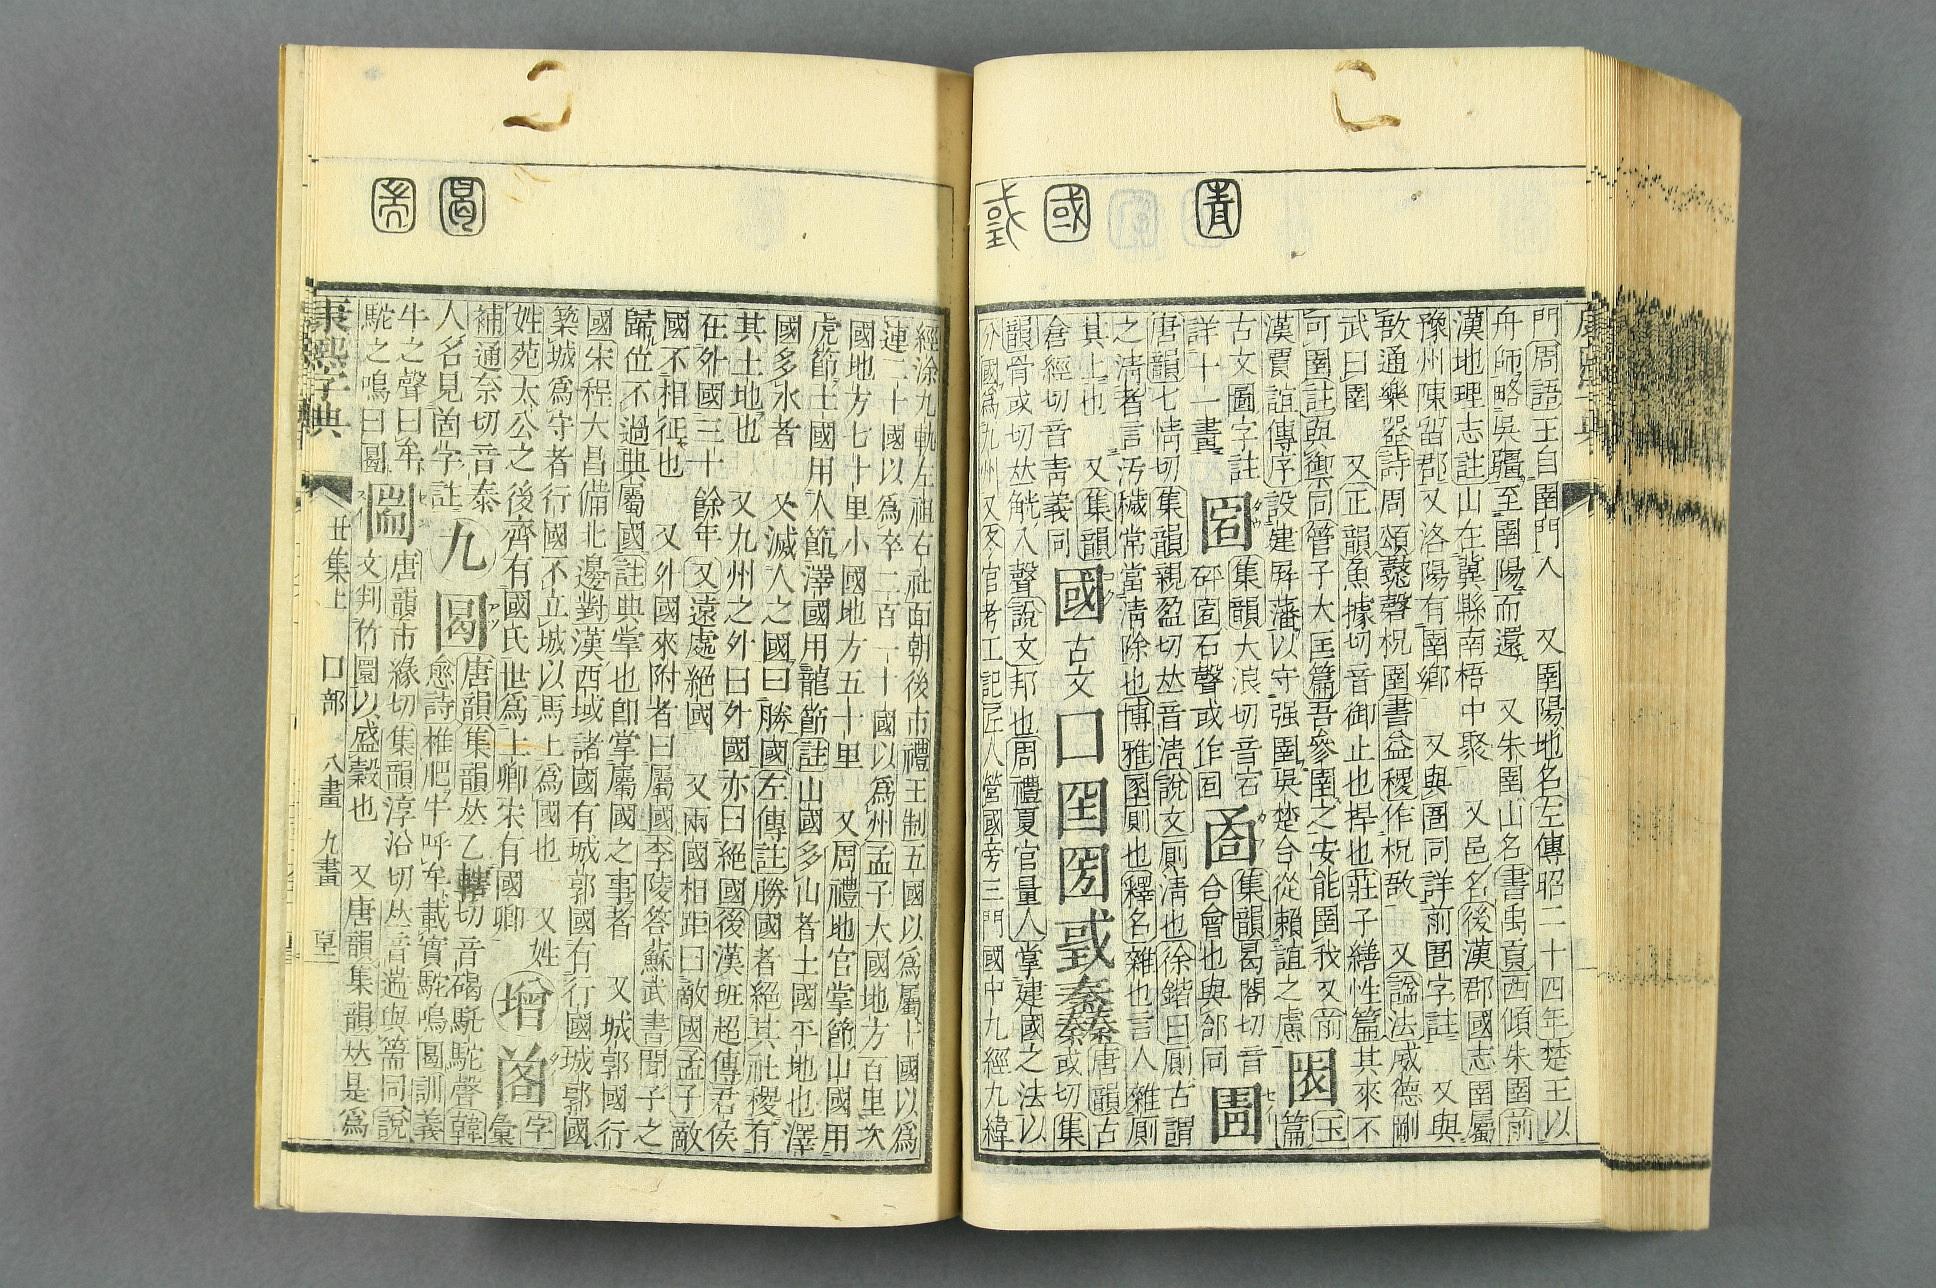 門周語王自圉門入　又圉陽地名左傳昭二十四年楚王以
舟師略吳疆至圉陽而還　又朱圉山名書禹貢西傾朱圉前
漢地理志註山在冀縣南梧中聚　又邑名後漢郡國志圉屬
豫州陳留郡又洛陽有圉鄉　又與圄同詳前圄字註　又與
敔通樂器詩周頌鼗磬柷圉書益稷作柷敔　又諡法威德剛
武曰圉　又正韻魚據切音御止也捍也莊子繕性篇其來不
可圉註與禦同管子大匡篇吾參圉之安能圉我又前
漢賈誼傳序設建屛藩以守强圉吳楚合從賴誼之慮
篇
古文圖字註
詳十一畫
集韻大浪切音宕
砰㓃石聲或作㓃
集韻曷閤切音
合會也與郃同
圊
唐韻七情切集韻親盈切𠀤音淸說文厠淸也徐鍇曰厠古謂
之淸者言汚穢常當淸除也博雅圂圊厠也釋名雜也言人雜厠
其上也　又集韻
倉經切音靑義同
國
古文
囗
唐韻古
或切集
韻骨或切𠀤觥入聲說文邦也周禮夏官量人掌建國之法以
分國爲九州又冬官考工記匠人營國旁三門國中九經九緯
經涂九軌左祖右社面朝後市禮王制五國以爲屬十國以爲
連二十國以爲卒二百一十國以爲州孟子大國地方百里次
國地方七十里小國地方五十里　又周禮地官掌節山國用
虎節土國用人節澤國用龍節註山國多山者土國平地也澤
國多水者　又滅人之國曰勝國左傳註勝國者絕其社稷有
其土地也　又九州之外曰外國亦曰絕國後漢班超傳君侯
在外國三十餘年　又遠處絕國　又兩國相距曰敵國孟子敵
國不相征也　又外國來附者曰屬國李陵答蘇武書聞子之
歸位不過典屬國註典掌也卽掌屬國之事者　又城郭國行
國宋程大昌備北邊對漢西域諸國有城郭國有行國城郭國
築城爲守者行國不立城以馬上爲國也　又姓
姓苑太公之後齊有國氏世爲上卿宋有國卿
增
字
彙
補通奈切音泰
人名見𡇌字註
九
唐韻集韻𠀤乙轄切音𥔎䭾駝聲韓
愈詩椎肥牛呼牟載實駝鳴圔訓義
牛之聲曰牟
駝之鳴曰圔
圌
唐韻市緣切集韻淳沿切𠀤音遄與篅同說
文判竹圜以盛穀也　又唐韻集韻𠀤是爲
康熙字典
丑集上　囗部　八畫　九畫